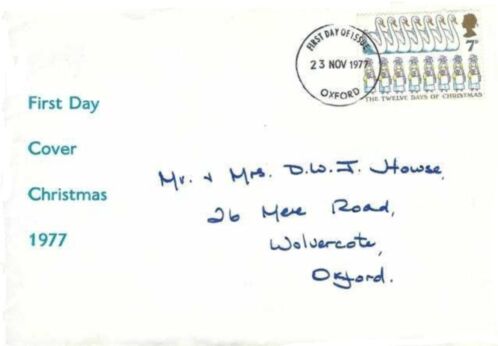 FIRST DAY OF ISSUE
23 NOV 1977
OXFORD
7P
THE TWELVE DAYS OF CHRISTMAS
First Day
Cover
Christmas
1977
Mr. + Mrs. D.W.J. Howse,
26 Mere Road,
Wolvercote,
Oxford.